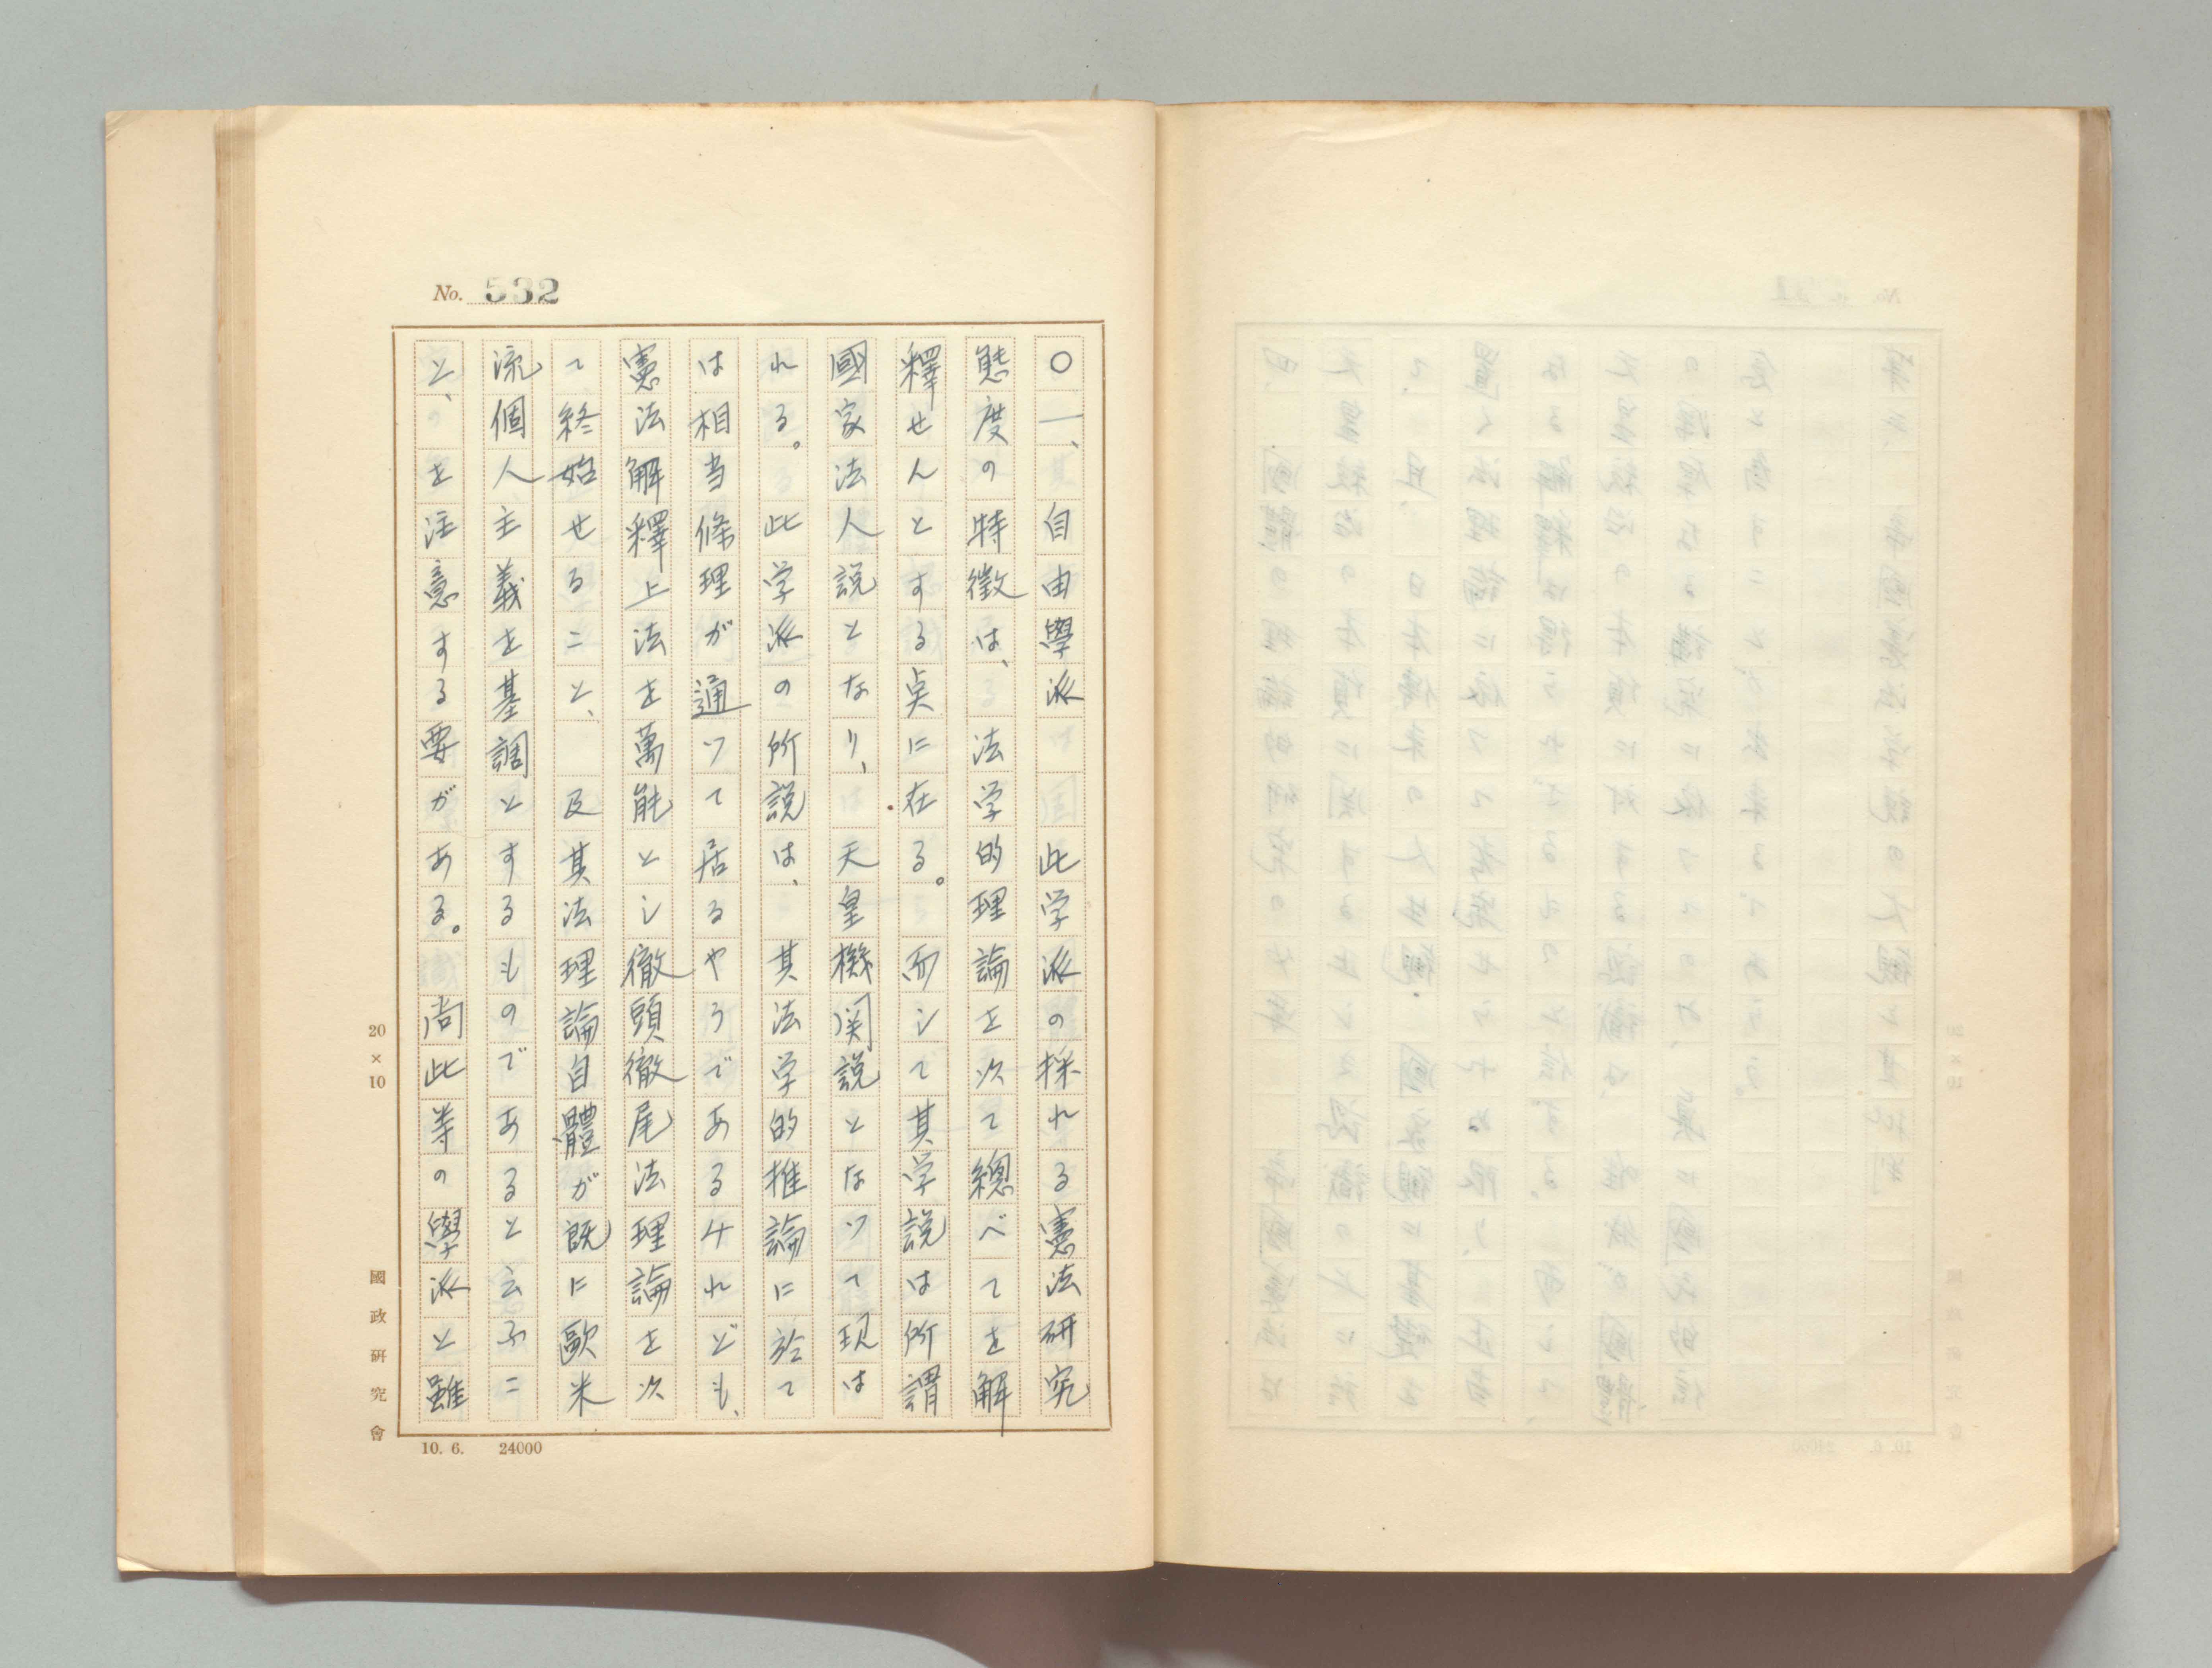 No. 532
○一、自由學派　此学派の採れる憲法研究
態度の特徴は、法学的理論を次て總べてを解
釋せんとする奌に在る。而シて其学説は所謂
國家法人説となり、天皇機関説となツて現は
れる。此学派の所説は、其法学的推論に於て
は相当條理が通ツて居るやうであるケれども、
憲法解釋上法を萬能とシ徹頭徹尾法理論を次
て終始せること、及其法理論自體が既に歐米
流個人主義を基調とするものであると云ふこ
と、を注意する要がある。尚此等の學派と雖
20×10
國政研究會
10. 6.　24000